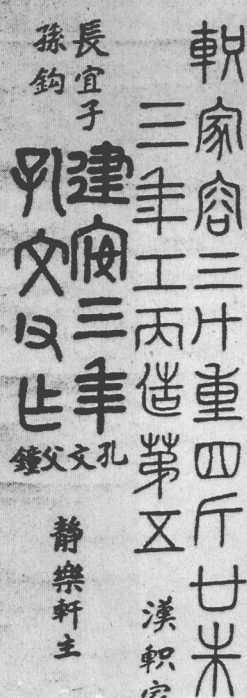 軹家容三斗重四斤廿朱
三年工丙造第五
漢軹家
長宜子
孫鈎
建安三年
孔文父作
孔文父鐘
靜樂軒主